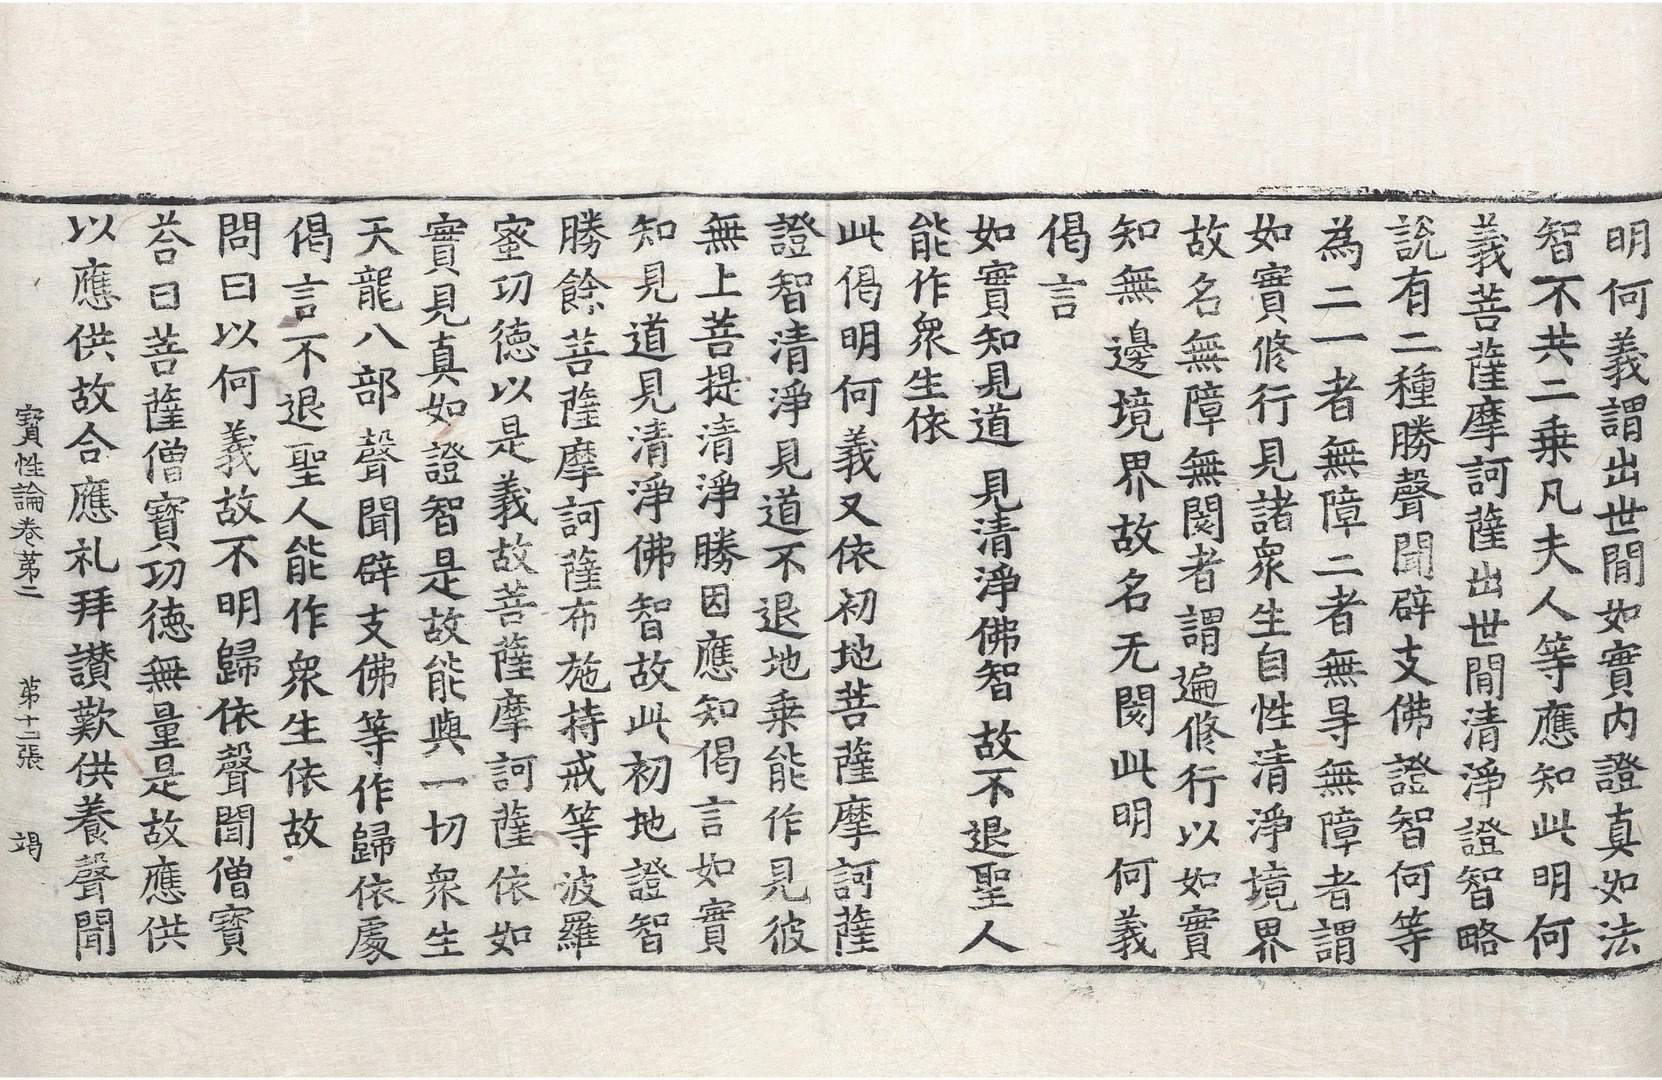 明何義謂出世間如實內證真如法
智不共二乘凡夫人等應知此明何
義菩薩摩訶薩出世間清淨證智略
說有二種勝聲聞辟支佛證智何等
為二一者無障二者無㝵無障者謂
如實修行見諸衆生自性清淨境界
故名無障無閡者謂遍修行以如實
知無邊境界故名无閡此明何義
偈言
如實知見道 見清淨佛智 故不退聖人
能作衆生依
此偈明何義又依初地菩薩摩訶薩
證智清淨見道不退地乘能作見彼
無上菩提清淨勝因應知偈言如實
知見道見清淨佛智故此初地證智
勝餘菩薩摩訶薩布施持戒等波羅
蜜功德以是義故菩薩摩訶薩依如
實見真如證智是故能與一切衆生
天龍八部聲聞辟支佛等作歸依處
偈言不退聖人能作衆生依故
問曰以何義故不明歸依聲聞僧寶
荅曰菩薩僧寶功德無量是故應供
以應供故合應礼拜讃歎供養聲聞
寶性論卷苐二 苐十二張 竭